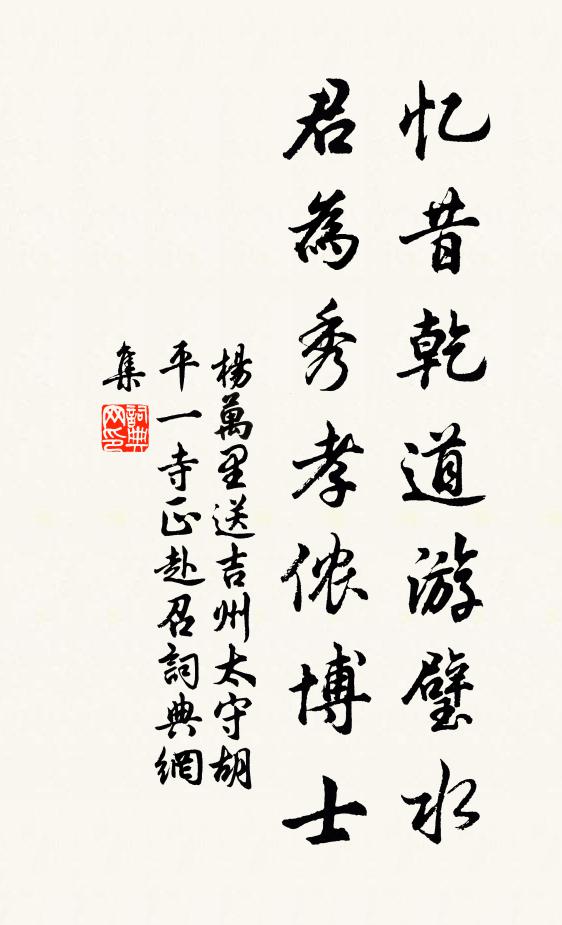 忆昔乾道游璧水
君為秀孝侬博士
楊萬里送吉州太守胡
平一寺正赴召詞典網
集
詞典网印